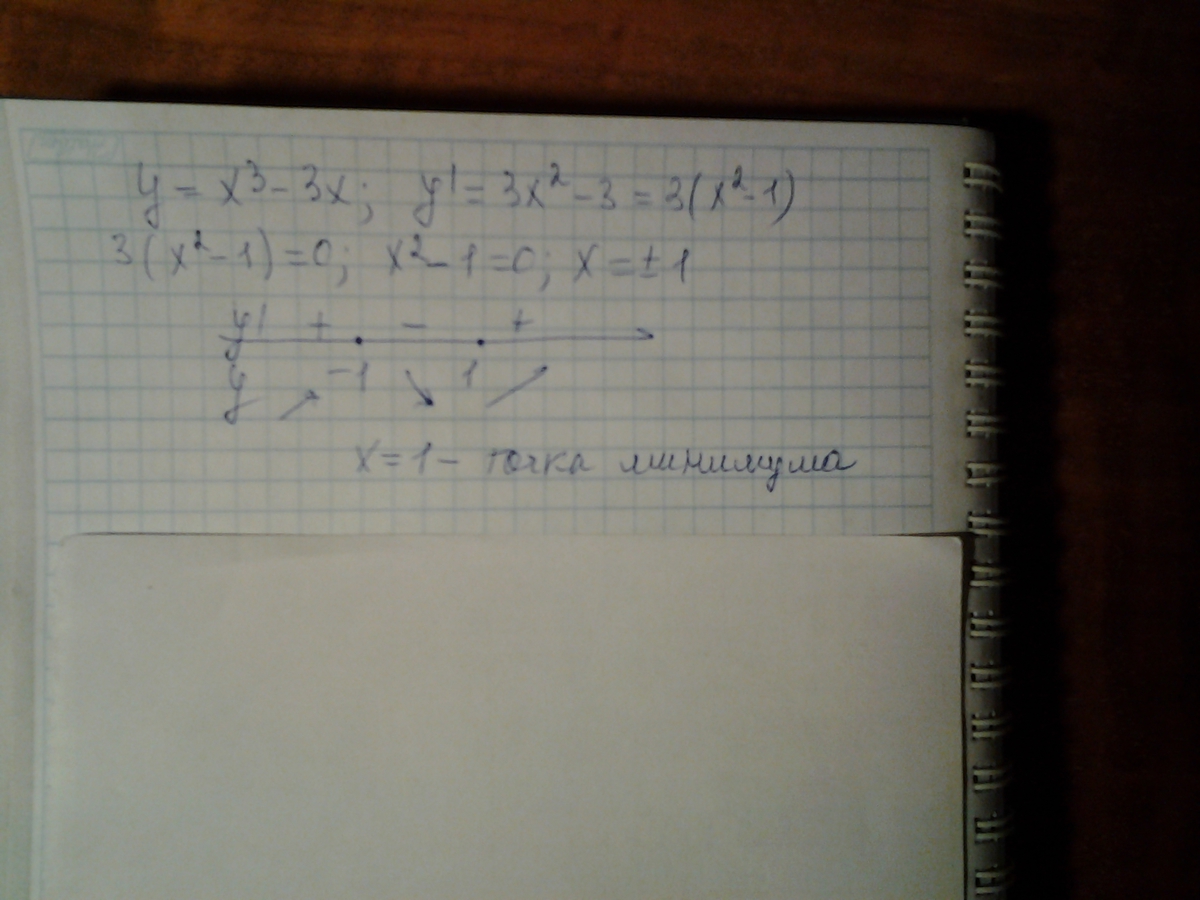 y = x³ - 3x; y' = 3x² - 3 = 3(x² - 1)
3(x² - 1) = 0; x² - 1 = 0; x = ± 1
y' + - +
y -1 ↘ 1 ↗
↗
x = 1 - точка минимума